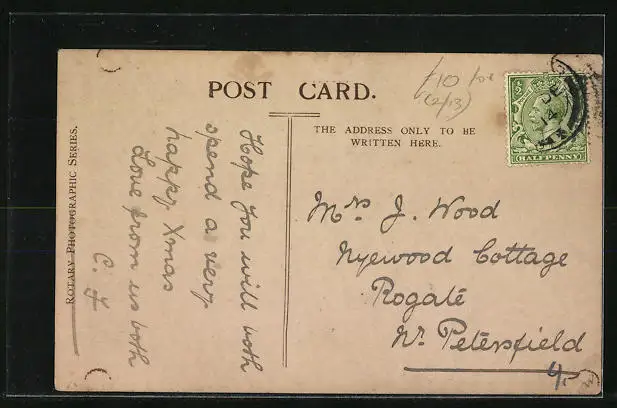 POST CARD.
£10
(2/13)
HALFPENNY
THE ADDRESS ONLY TO BE
WRITTEN HERE.
ROTARY PHOTOGRAPHIC SERIES.
Hope you will both
spend a very
happy Xmas
Love from us both
C. F
Mrs J. Wood
Nyewood Cottage
Rogate
Nr Petersfield
4.